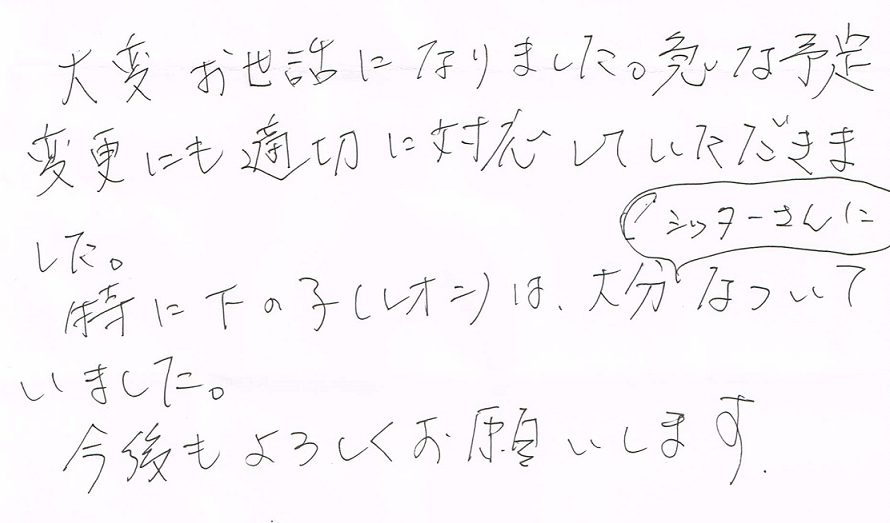 大変お世話になりました。急な予定
変更にも適切に対応していただきま
した。
シッターさんに
特に下の子(レオン)は、大分なついて
いました。
今後もよろしくお願いします.